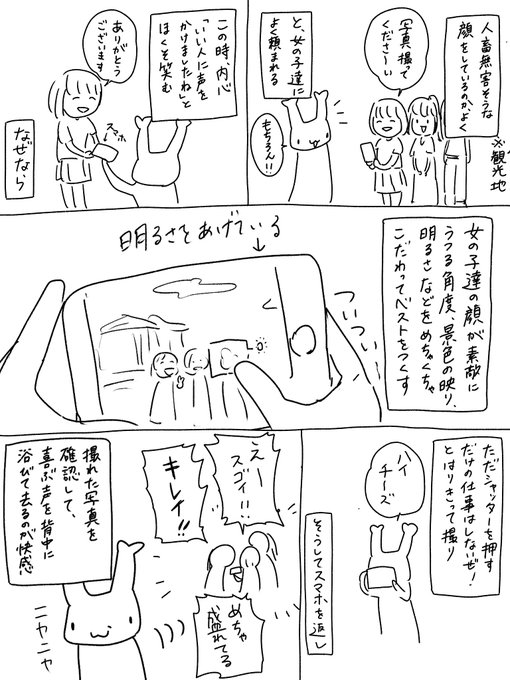 人畜無害そうな
顔をしているのか、よく
※観光地
写真撮って
くださ〜い
と、女の子達に
よく頼まれる
もちろん!!
この時、内心
「いい人に声を
かけましたね」と
ほくそ笑む
ありがとう
ございます
スマホ
なぜなら
女の子達の顔が素敵に
うつる角度、景色の映り、
明るさなどをめちゃくちゃ
こだわってベストをつくす
明るさをあげている
ついつい
ただシャッターを押す
だけの仕事はしないぜ!
とはりきって撮り
ハイ
チーズ
そうしてスマホを返し
えー
スゴイ!!
キレイ!!
めちゃ
盛れてる
撮れた写真を
確認して、
喜ぶ声を背中に
浴びて去るのが快感
ニヤニヤ